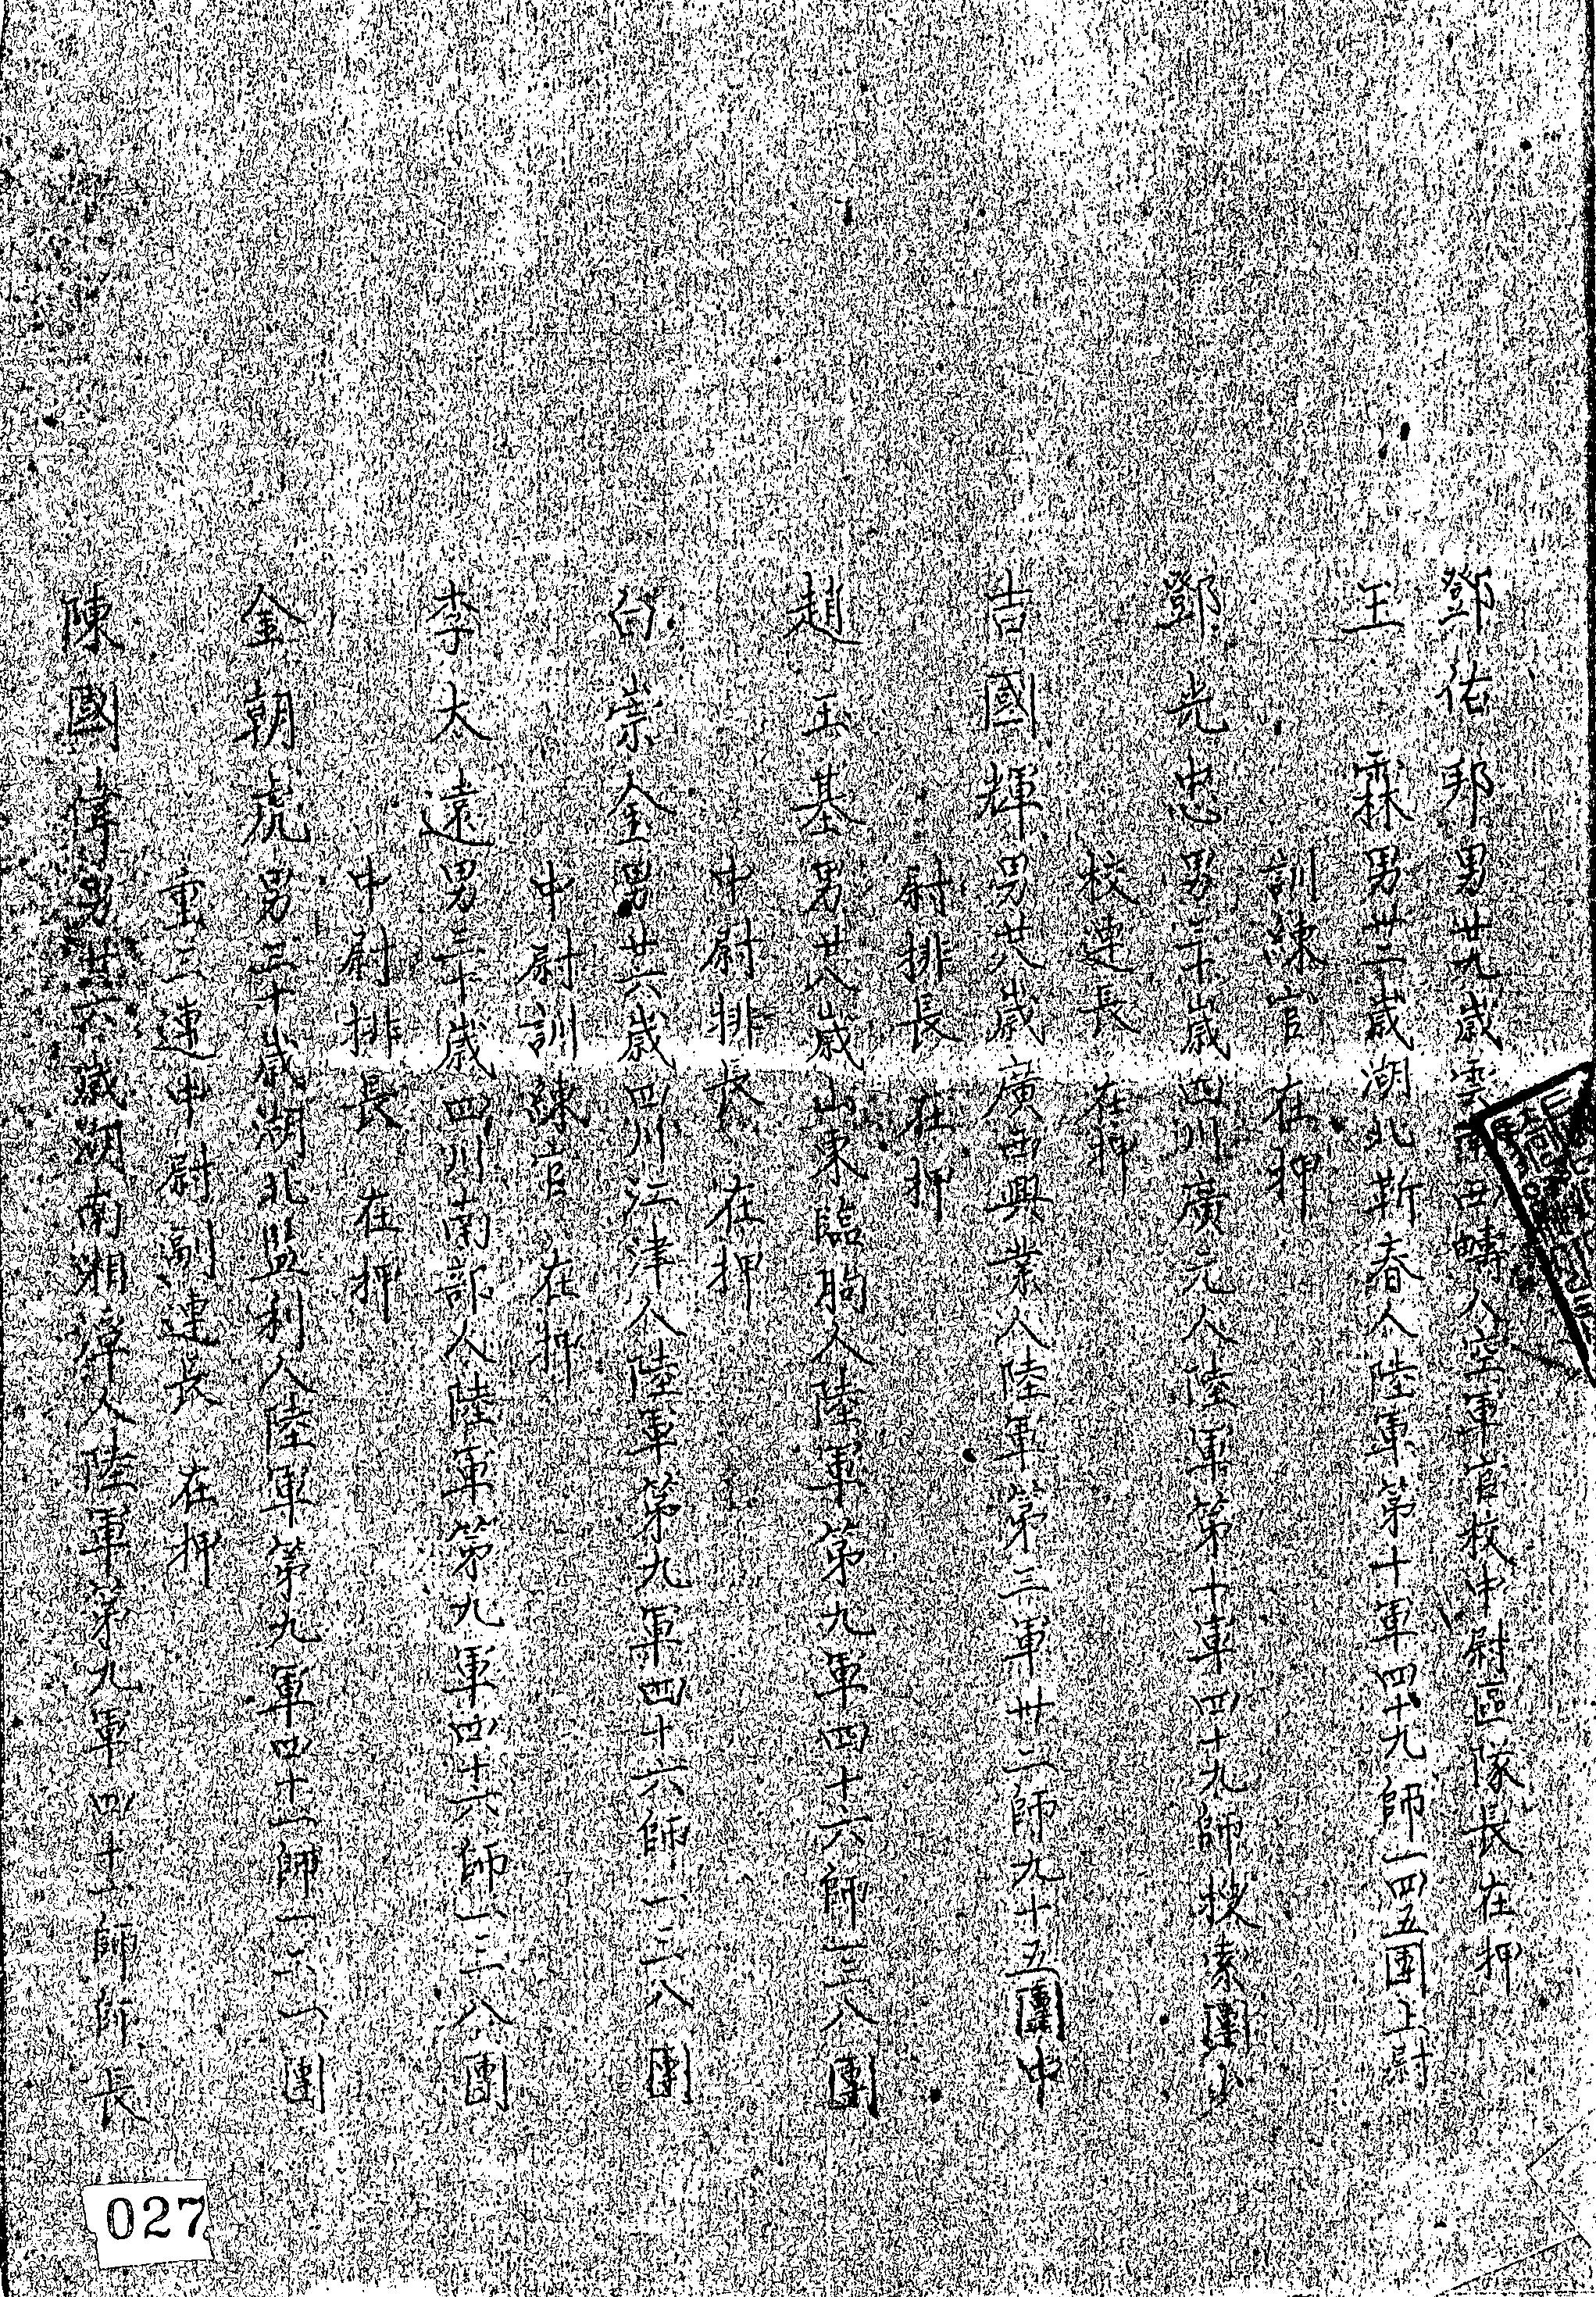 鄧佑邦男廿九歲雲南　疇人空軍官校中尉區隊長在押
王　霖男廿三歲湖北蘄春人陸軍第十軍四十九師一四五團上尉
訓練官　在押
鄧光忠男三十歲四川廣元人陸軍第十軍四十九師搜索團少
校連長　在押
吉國輝男廿八歲廣西興業人陸軍第三軍卅二師九十五團中
尉排長　在押
趙玉基男廿八歲山東臨朐人陸軍第九軍四十六師一三八團
中尉排長　在押
白崇金男廿六歲四川江津人陸軍第九軍四十六師一三八團
中尉訓練官　在押
李太遠男三十歲四川南部人陸軍第九軍四十六師一三八團
中尉排長　在押
金朝虎男三十歲湖北監利人陸軍第九軍四十一師一六一團
重三連中尉副連長　在押
陳國偉男廿六歲湖南湘潭人陸軍第九軍四十一師師長
027